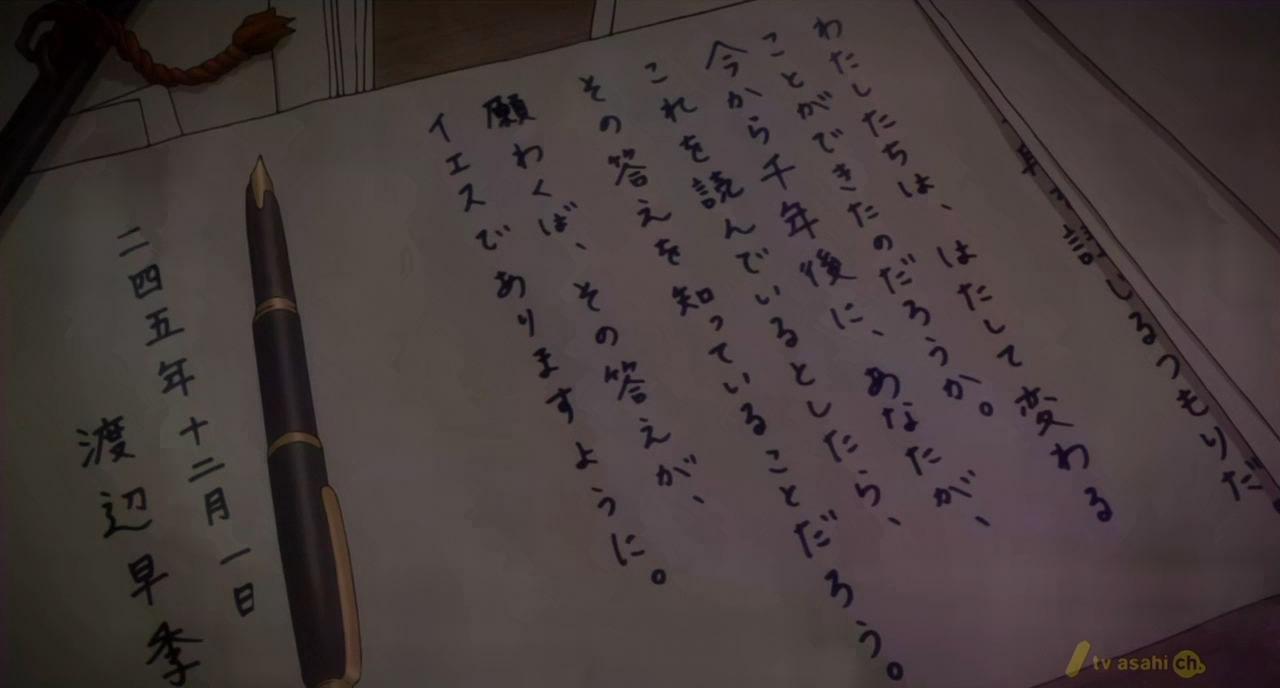 記しるつもりだ
わたしたちは、はたして変わる
ことができたのだろうか。
今から千年後に、あなたが、
これを読んでいるとしたら、
その答えを知っていることだろう。
願わくば、その答えが、
イエスでありますように。
二四五年十二月一日
渡辺早季
tv asahi ch.